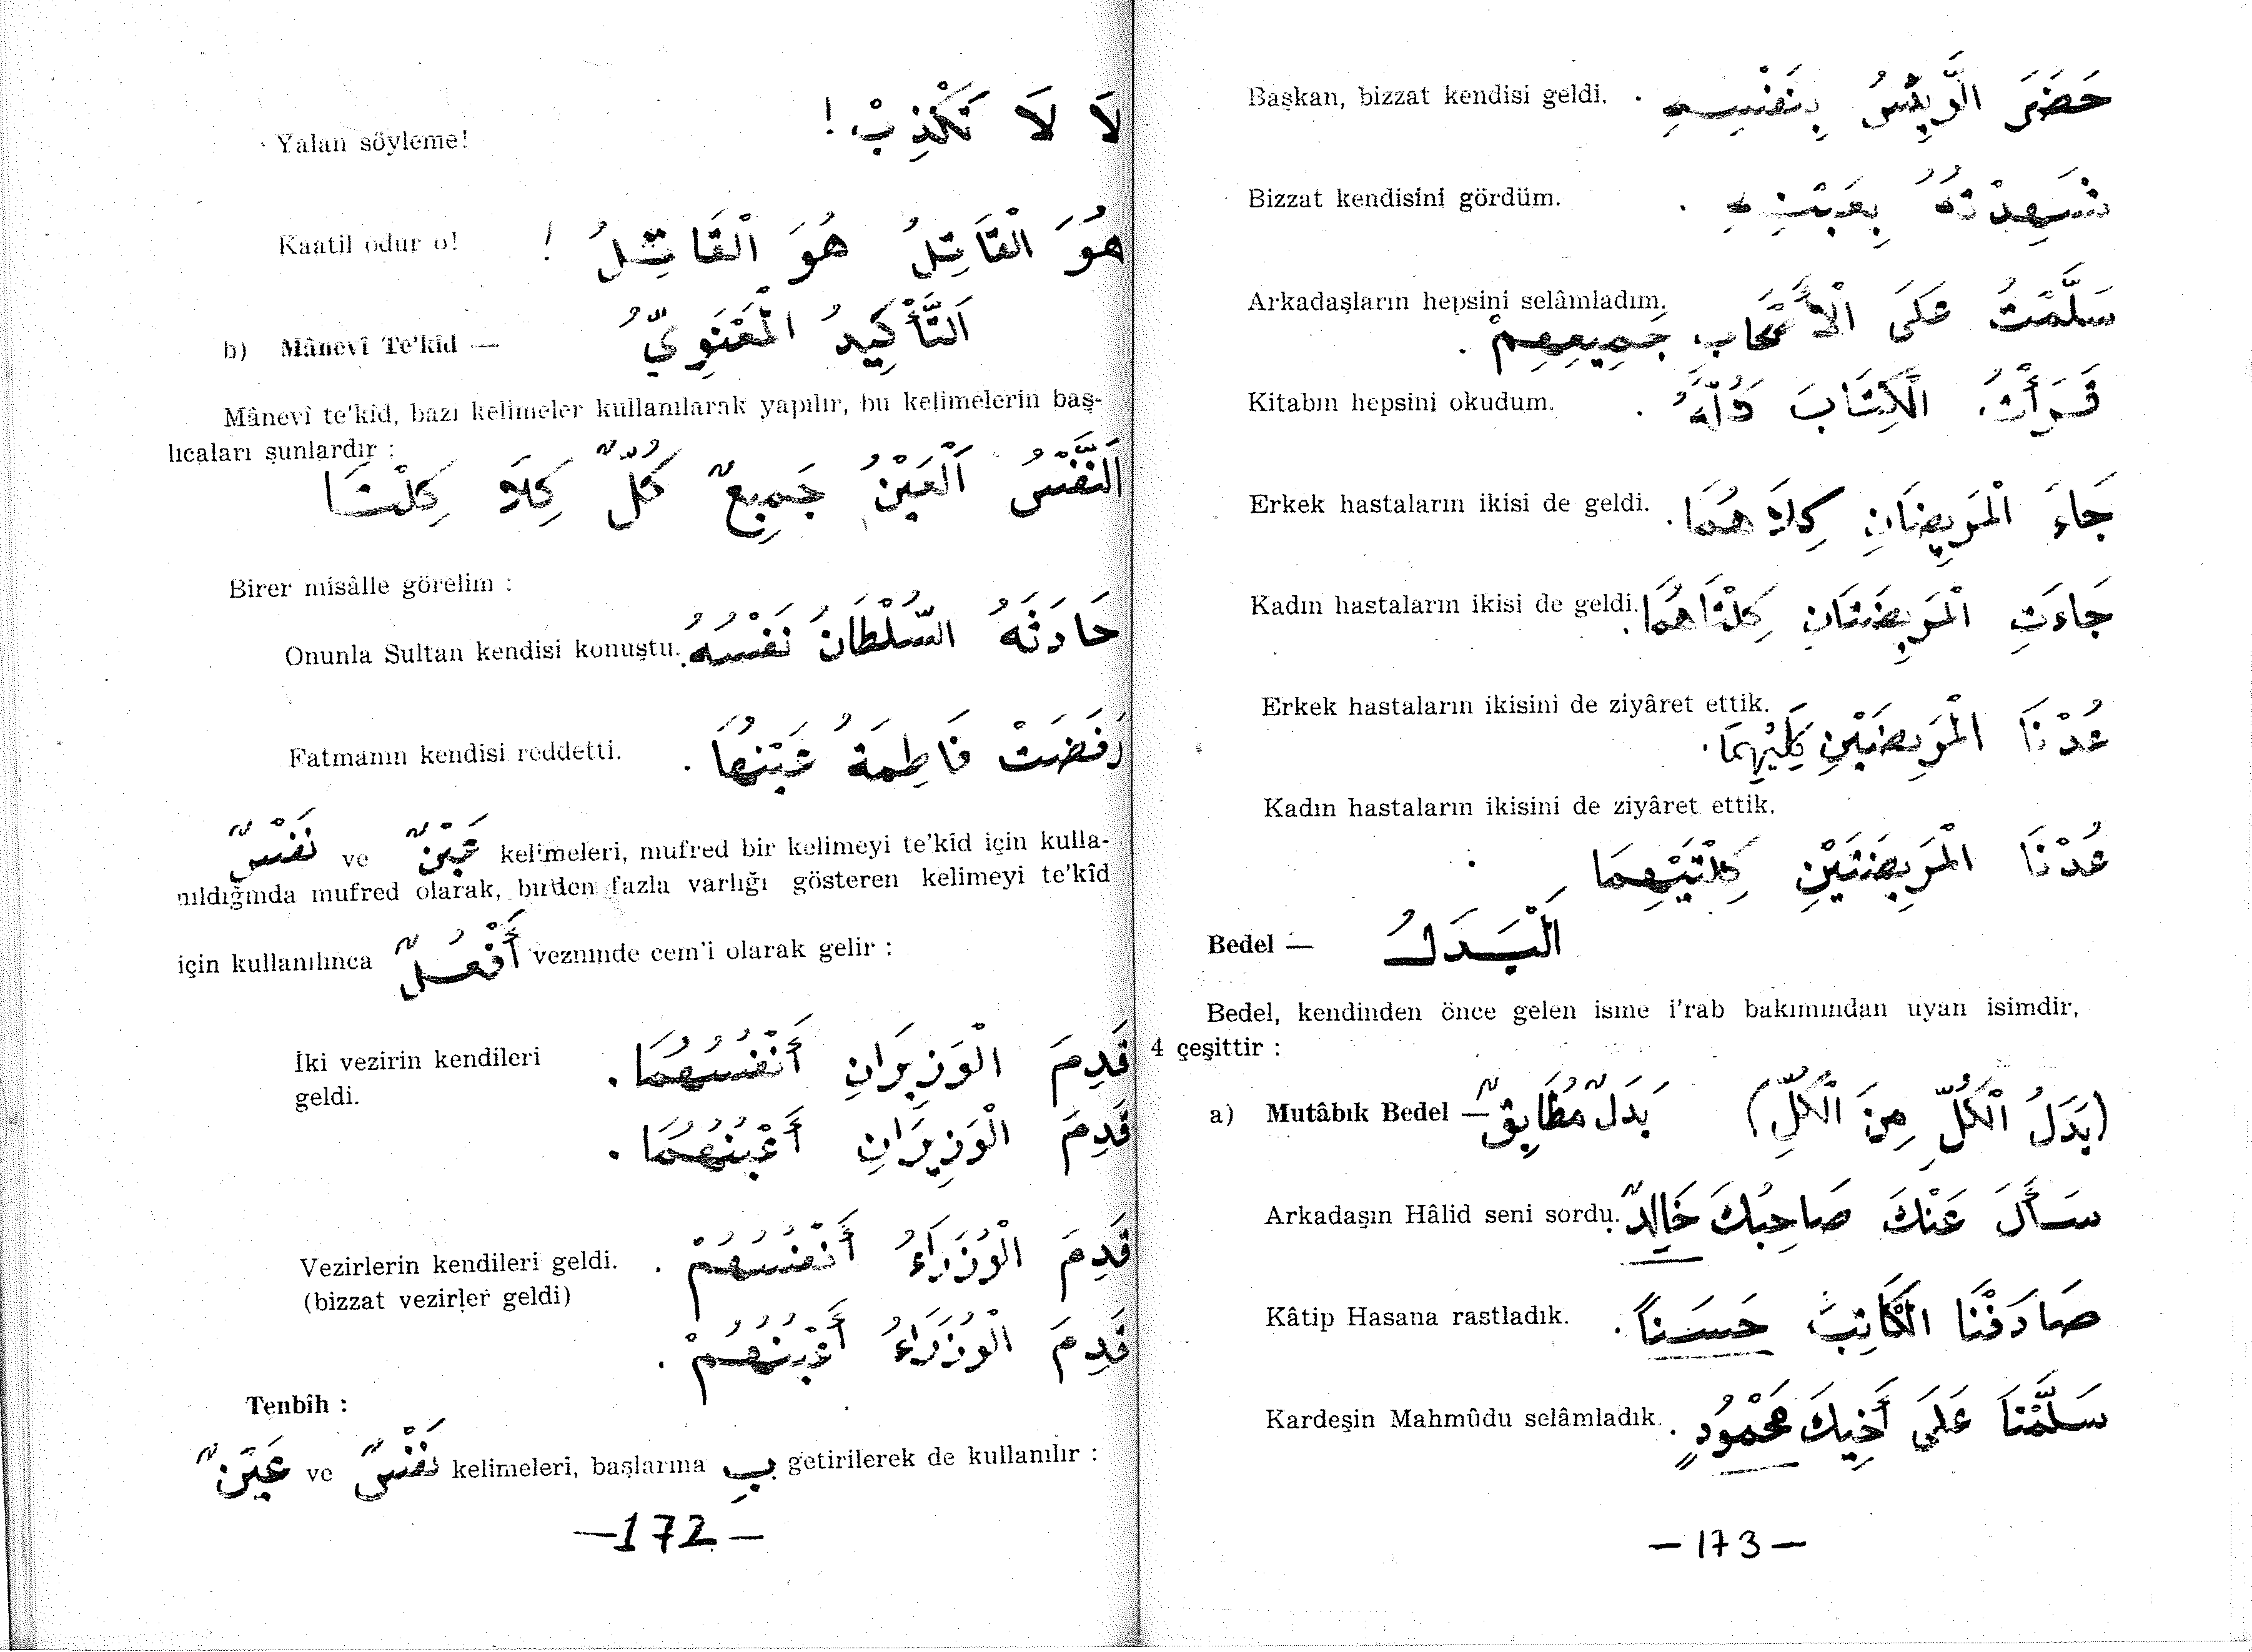 Yalan söyleme! لَا لَا تَكْذِبْ !
Kaatil odur o! هُوَ الْقَاتِلُ هُوَ الْقَاتِلُ !
b) Mânevî Te'kîd — اَلتَّأْكِيدُ الْمَعْنَوِيُّ
Mânevî te'kid, bazı kelimeler kullanılarak yapılır, bu kelimelerin baş-
lıcaları şunlardır :
اَلنَّفْسُ اَلْعَيْنُ جَمِيعٌ كُلٌّ كِلَا كِلْتَا
Birer misâlle görelim :
Onunla Sultan kendisi konuştu. حَادَثَهُ السُّلْطَانُ نَفْسُهُ.
Fatmanın kendisi reddetti. رَفَضَتْ فَاطِمَةُ عَيْنُهَا .
نَفْسٌ ve عَيْنٌ kelimeleri, mufred bir kelimeyi te'kîd için kulla-
nıldığında mufred olarak, birden fazla varlığı gösteren kelimeyi te'kîd
için kullanılınca أَفْعُلٌ vezninde cem'i olarak gelir :
İki vezirin kendileri قَدِمَ الْوَزِيرَانِ أَنْفُسُهُمَا .
geldi.
قَدِمَ الْوَزِيرَانِ أَعْيُنُهُمَا .
Vezirlerin kendileri geldi. قَدِمَ الْوُزَرَاءُ أَنْفُسُهُمْ .
(bizzat vezirler geldi)
قَدِمَ الْوُزَرَاءُ أَعْيُنُهُمْ .
Tenbîh :
عَيْنٌ ve نَفْسٌ kelimeleri, başlarına بِ getirilerek de kullanılır :
—172—
Başkan, bizzat kendisi geldi. حَضَرَ الرَّئِيسُ بِنَفْسِهِ .
Bizzat kendisini gördüm. شَهِدْتُهُ بِعَيْنِهِ .
Arkadaşların hepsini selâmladım. سَلَّمْتُ عَلَى الْأَصْحَابِ جَمِيعِهِمْ .
Kitabın hepsini okudum. قَرَأْتُ الْكِتَابَ كُلَّهُ .
Erkek hastaların ikisi de geldi. جَاءَ الْمَرِيضَانِ كِلَاهُمَا .
Kadın hastaların ikisi de geldi. جَاءَتِ الْمَرِيضَتَانِ كِلْتَاهُمَا .
Erkek hastaların ikisini de ziyâret ettik. عُدْنَا الْمَرِيضَيْنِ كِلَيْهِمَا .
Kadın hastaların ikisini de ziyâret ettik.
عُدْنَا الْمَرِيضَتَيْنِ كِلْتَيْهِمَا .
Bedel — اَلْبَدَلُ
Bedel, kendinden önce gelen isme i'rab bakımından uyan isimdir,
4 çeşittir :
a) Mutâbık Bedel — بَدَلٌ مُطَابِقٌ (بَدَلُ الْكُلِّ مِنَ الْكُلِّ)
Arkadaşın Hâlid seni sordu. سَأَلَ عَنْكَ صَاحِبُكَ خَالِدٌ
Kâtip Hasana rastladık. صَادَفْنَا الْكَاتِبَ حَسَنًا .
Kardeşin Mahmûdu selâmladık. سَلَّمْنَا عَلَى أَخِيكَ مَحْمُودٍ .
— 173 —